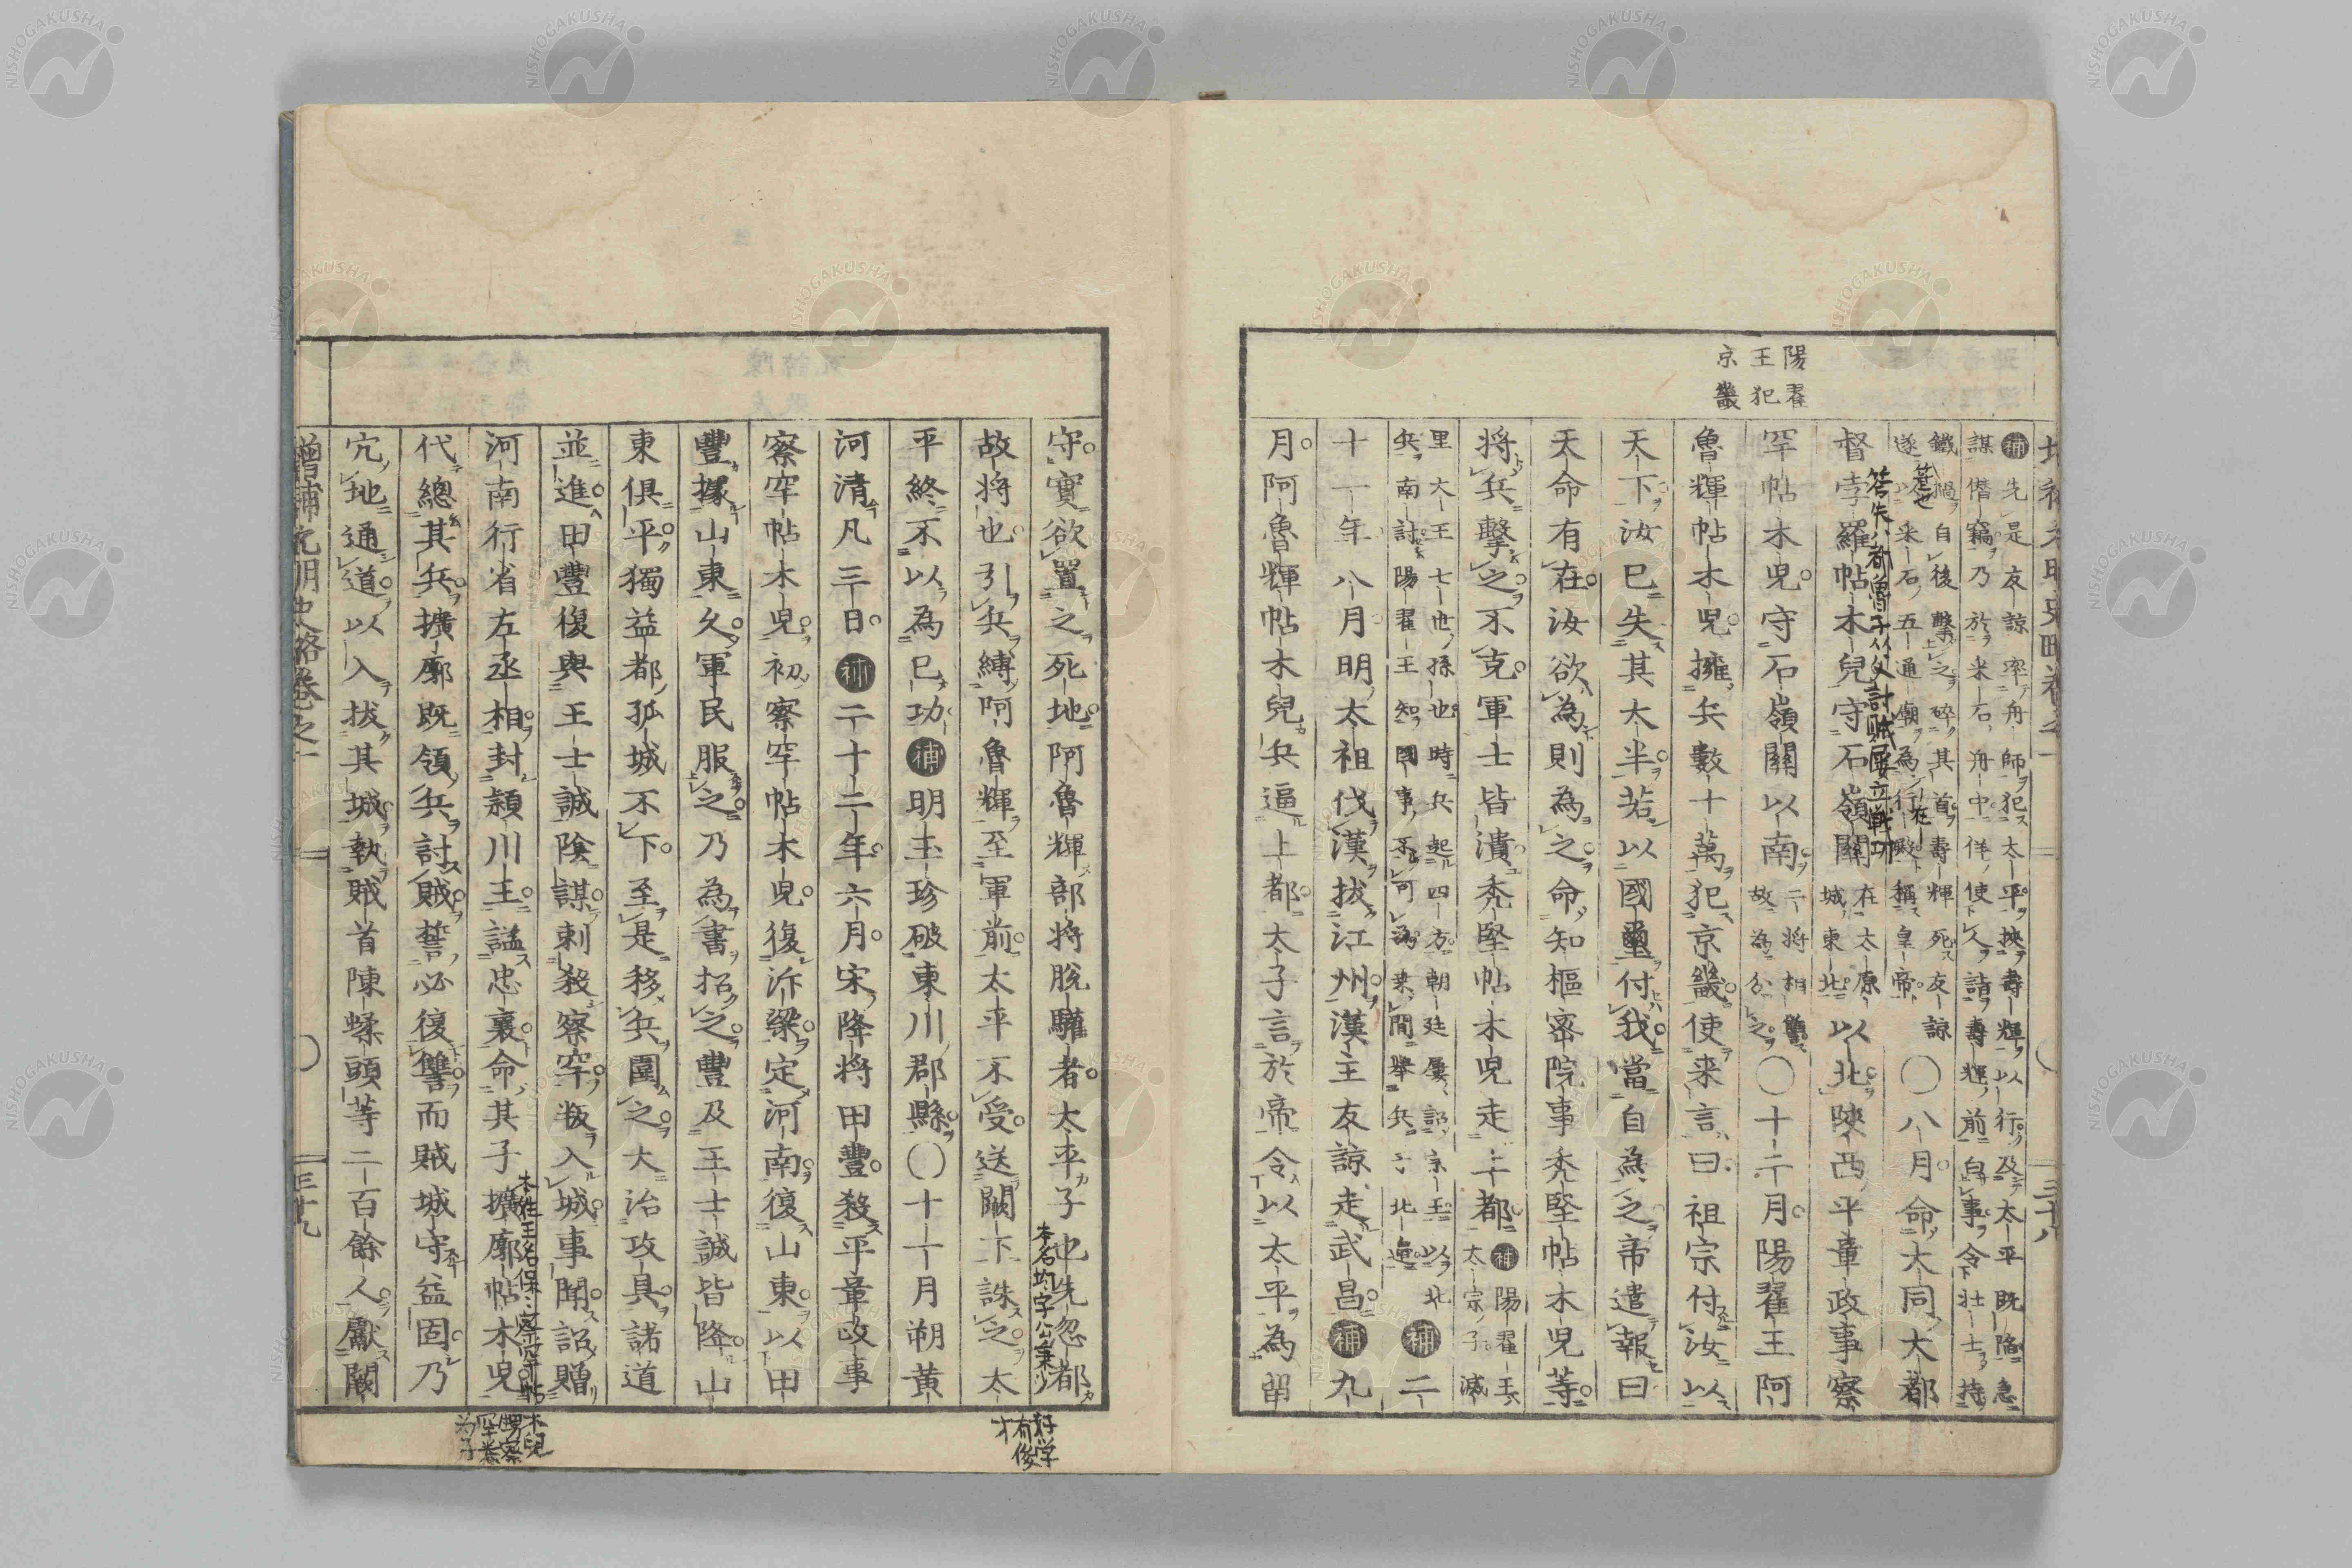 陽翟
王犯
京畿
補先是友諒率舟師犯太平挾壽輝以行及太平既陥急
謀僭竊乃於采石舟中佯使人詣壽輝前白事令壯士持
鐵撾自後擊之碎其首壽輝死友諒
遂以采石五通廟為行殿稱皇帝
〇八月命大同大都
督孛羅帖木兒守石嶺關
在太原
城東北
以北陝西平章政事察
罕帖木児守石嶺關以南
二将相讎
故為分之
〇十二月陽翟王阿
魯輝帖木児擁兵數十萬犯京畿使来言曰祖宗付汝以
天下汝已失其太半若以國璽付我當自為之帝遣報曰
天命有在汝欲為則為之命知樞密院事禿堅帖木児等
将兵擊之不克軍士皆潰禿堅帖木児走上都
補陽翟王
太宗子滅
里大王七世孫也時兵起四方朝廷屢詔宗王以北
兵南討陽翟王知國事不可為乗間舉兵北邊
補二
十一年八月明太祖伐漢拔江州漢主友諒走武昌補九
月阿魯輝帖木兒兵逼上都太子言於帝令以太平為留
守實欲置之死地阿魯輝部将脫驩者太平子也先忽都
故将也引兵縛阿魯輝至軍前太平不受送闕下誅之太
平終不以為已功補明玉珍破東川郡縣〇十一月朔黄
河清凡三日補二十二年六月宋降将田豐殺平章政事
察罕帖木児初察罕帖木児復汴梁定河南復山東以田
豐據山東久軍民服之乃為書招之豐及王士誠皆降山
東俱平獨益都孤城不下至是移兵圍之大治攻具諸道
並進田豐復與王士誠陰謀刺殺察罕叛入城事聞詔贈
河南行省左丞相封潁川王諡忠襄命其子擴廓帖木児
代總其兵擴廓既領兵討賊誓必復讐而賊城守益固乃
穴地通道以入拔其城執賊首陳蝚頭等二百餘人獻闕
増補元明史略巻之一
三十九
答失八都魯子從父討賊屡立戦功
本名均字公秉少
好学
有俊
才
本姓王名保〻察罕帖
木兒
甥察
罕養
为子